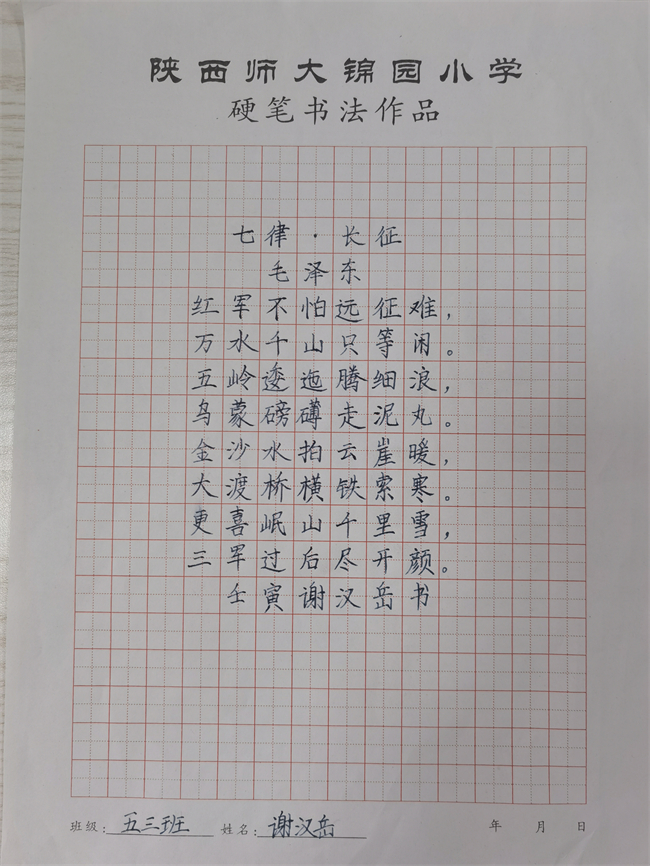 陕西师大锦园小学
硬笔书法作品
七律·长征
毛泽东
红军不怕远征难，
万水千山只等闲。
五岭逶迤腾细浪，
乌蒙磅礴走泥丸。
金沙水拍云崖暖，
大渡桥横铁索寒。
更喜岷山千里雪，
三军过后尽开颜。
壬寅谢汉岳书
班级：五三班 姓名：谢汉岳 年 月 日